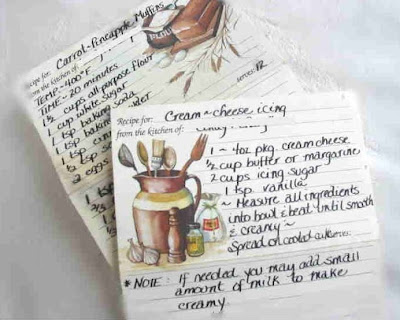 Recipe for: Carrot-Pineapple Muffins
from the kitchen of:
TEMP-400°F
TIME-20 minutes
1½ cups all purpose flour
1 cup white sugar
1 tsp baking soda
1 tsp baking
1 tsp
½ tsp
2 eggs
FLOUR
SERVES: 12
Recipe for: Cream~cheese icing
from the kitchen of:
1 ~ 4oz pkg. cream cheese
½ cup butter or margarine
2 cups icing sugar
1 tsp vanilla
~ Measure all ingredients
into bowl & beat until smooth
creamy ~
Spread on cooled
* NOTE: If needed you may add small
amount of milk to make
creamy.